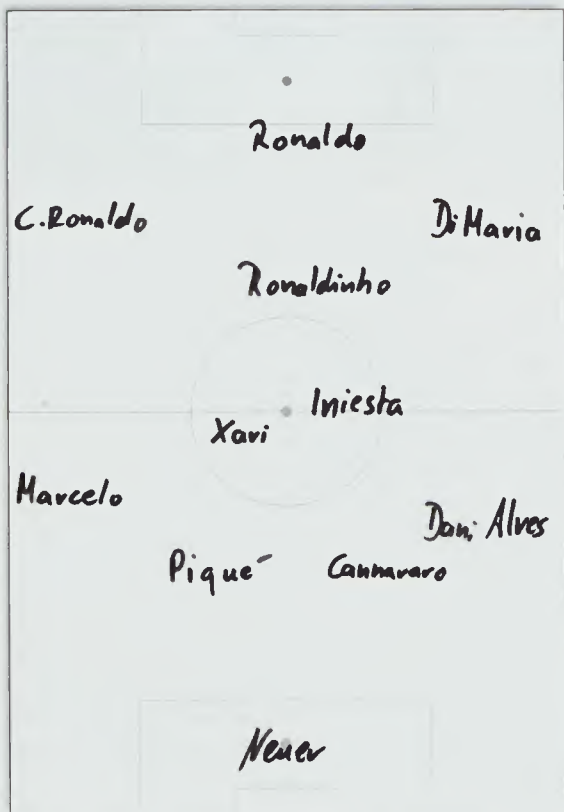 Ronaldo
C. Ronaldo
Di Maria
Ronaldinho
Iniesta
Xavi
Marcelo
Dani Alves
Piqué
Cannavaro
Neuer